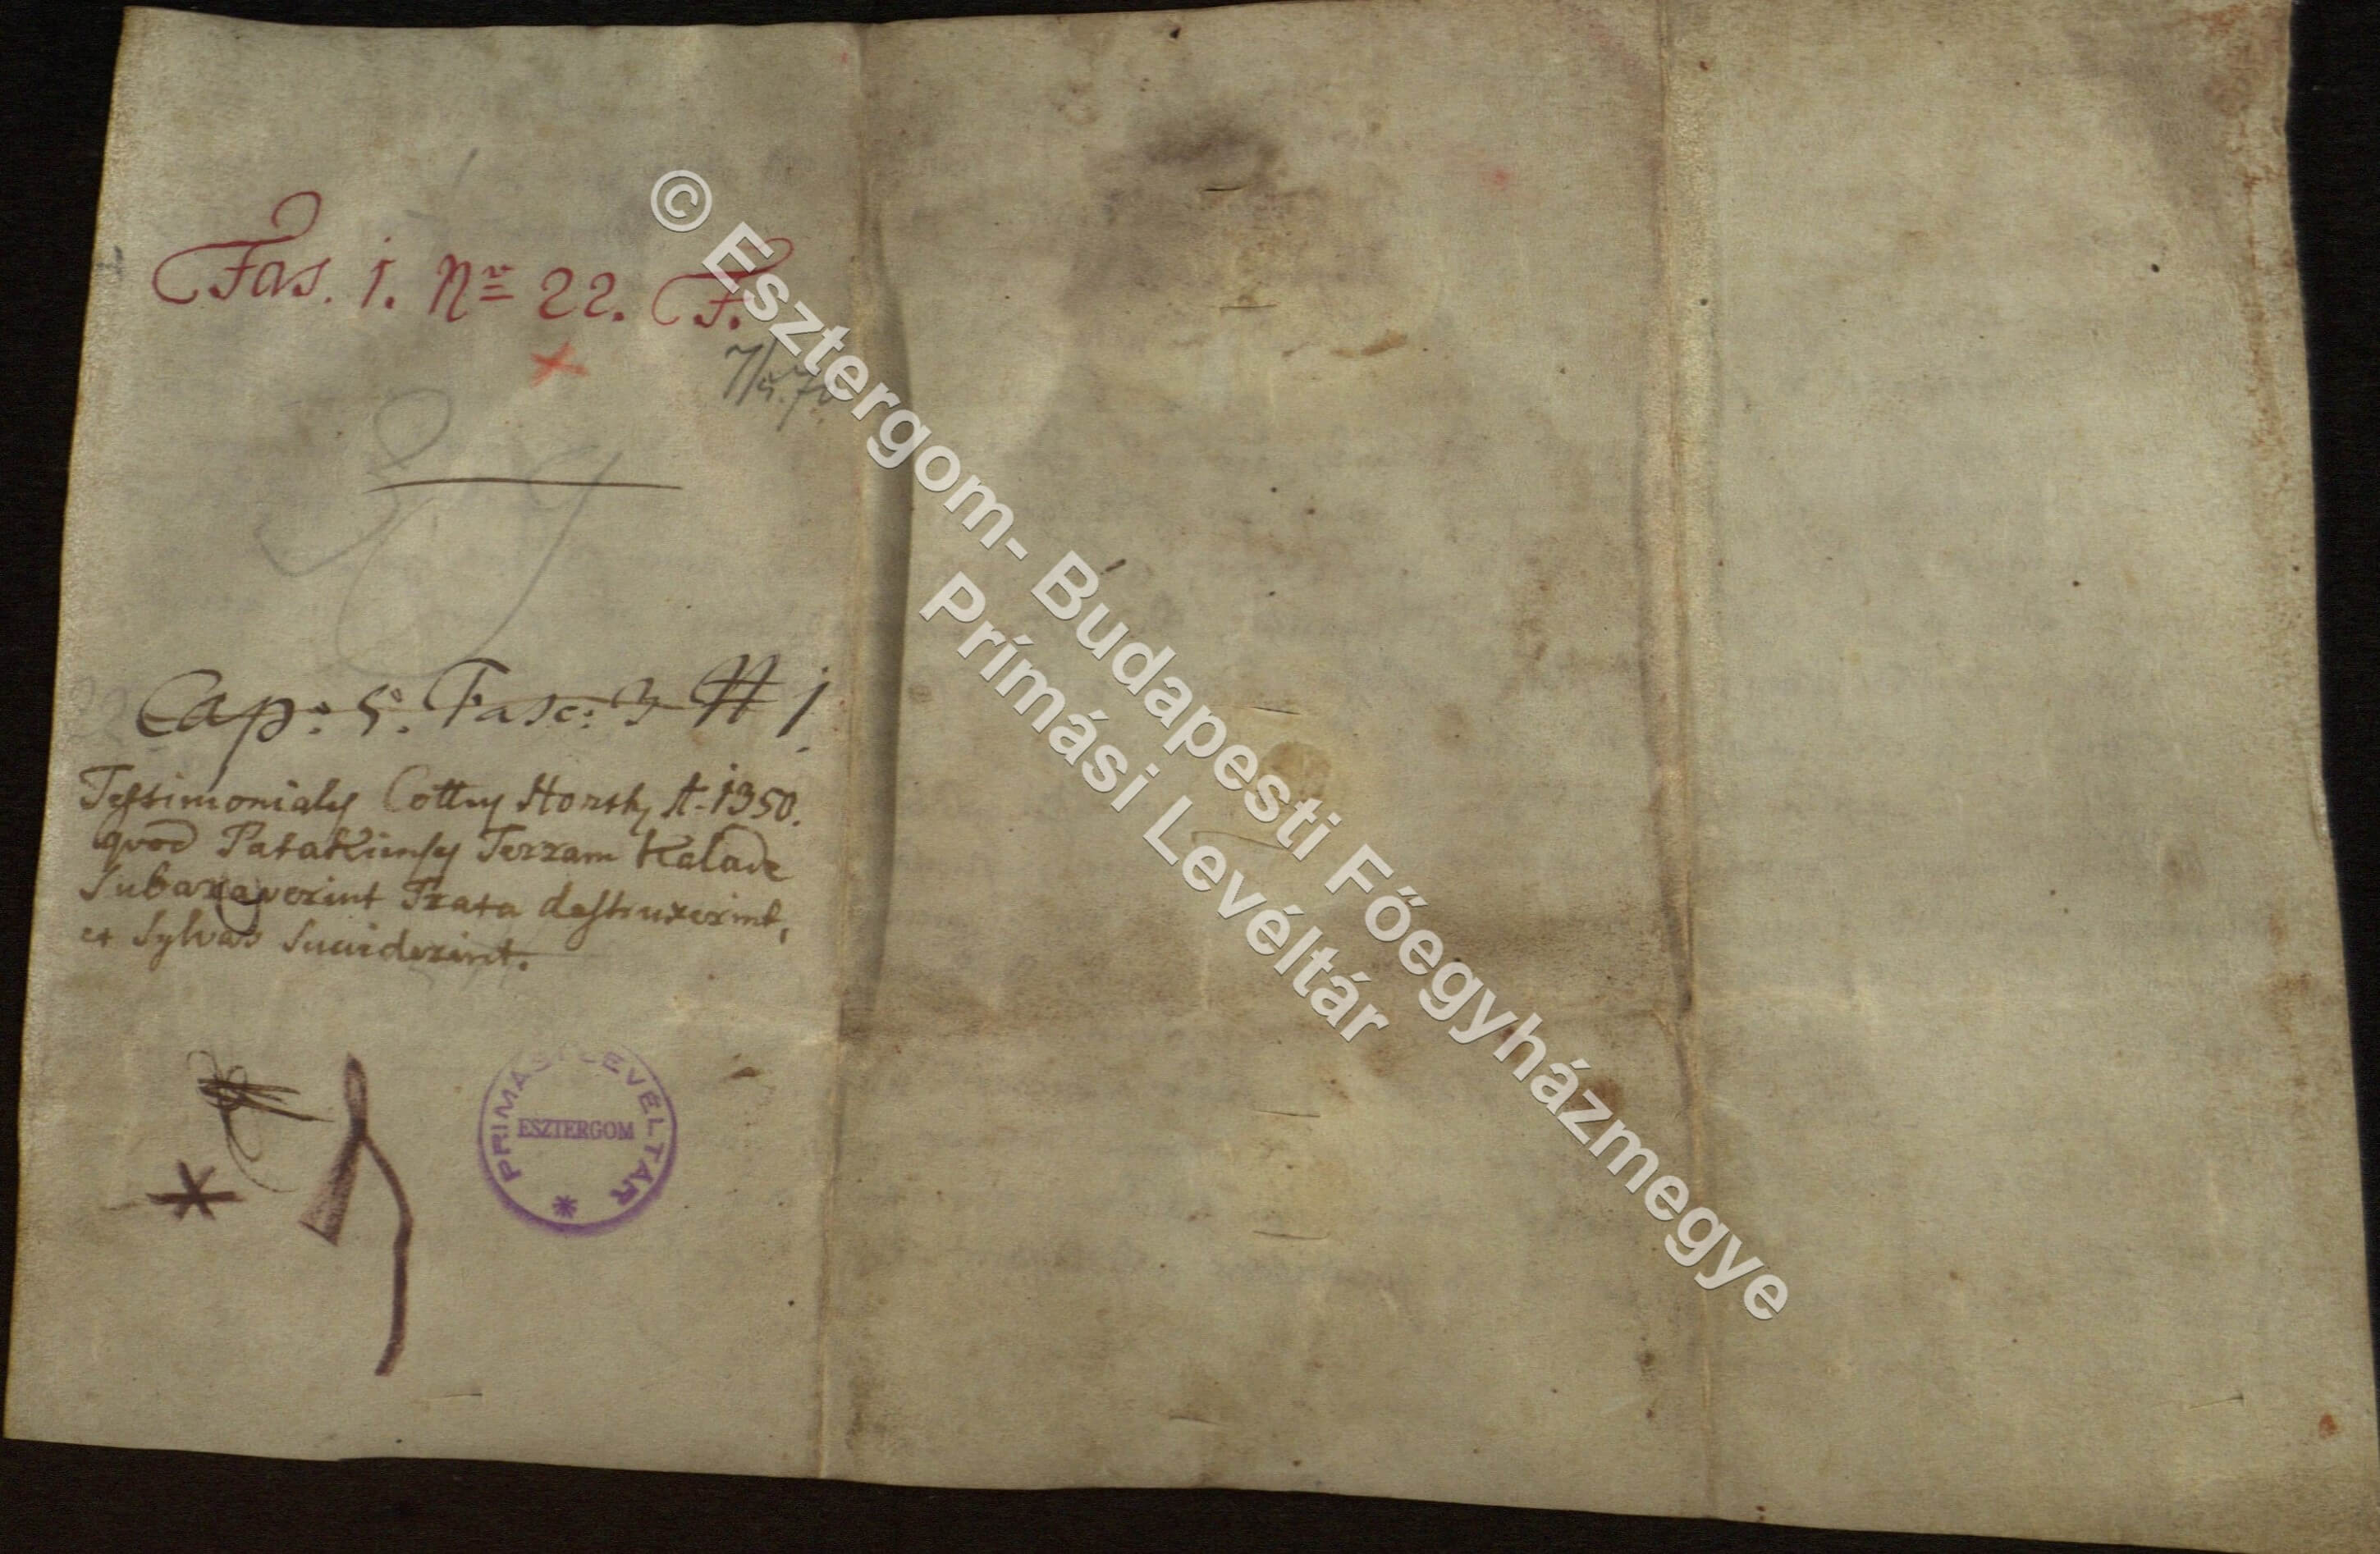 Fas. 1. Nro 22. F.
Cap: 5. Fasc: 3 # 1.
Testimonialis Cottus Honth, A. 1350.
quod Patakienses Terram Kalade
Subaraverint Prata destruxerint,
et Sylvas Succiderint.
PRIMÁSI LEVÉLTÁR
ESZTERGOM
© Esztergom- Budapesti Főegyházmegye
Prímási Levéltár